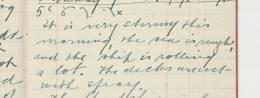 It is very stormy this
morning, the sea is rough,
and the ship is rolling
a lot. The decks are wet
with spray.